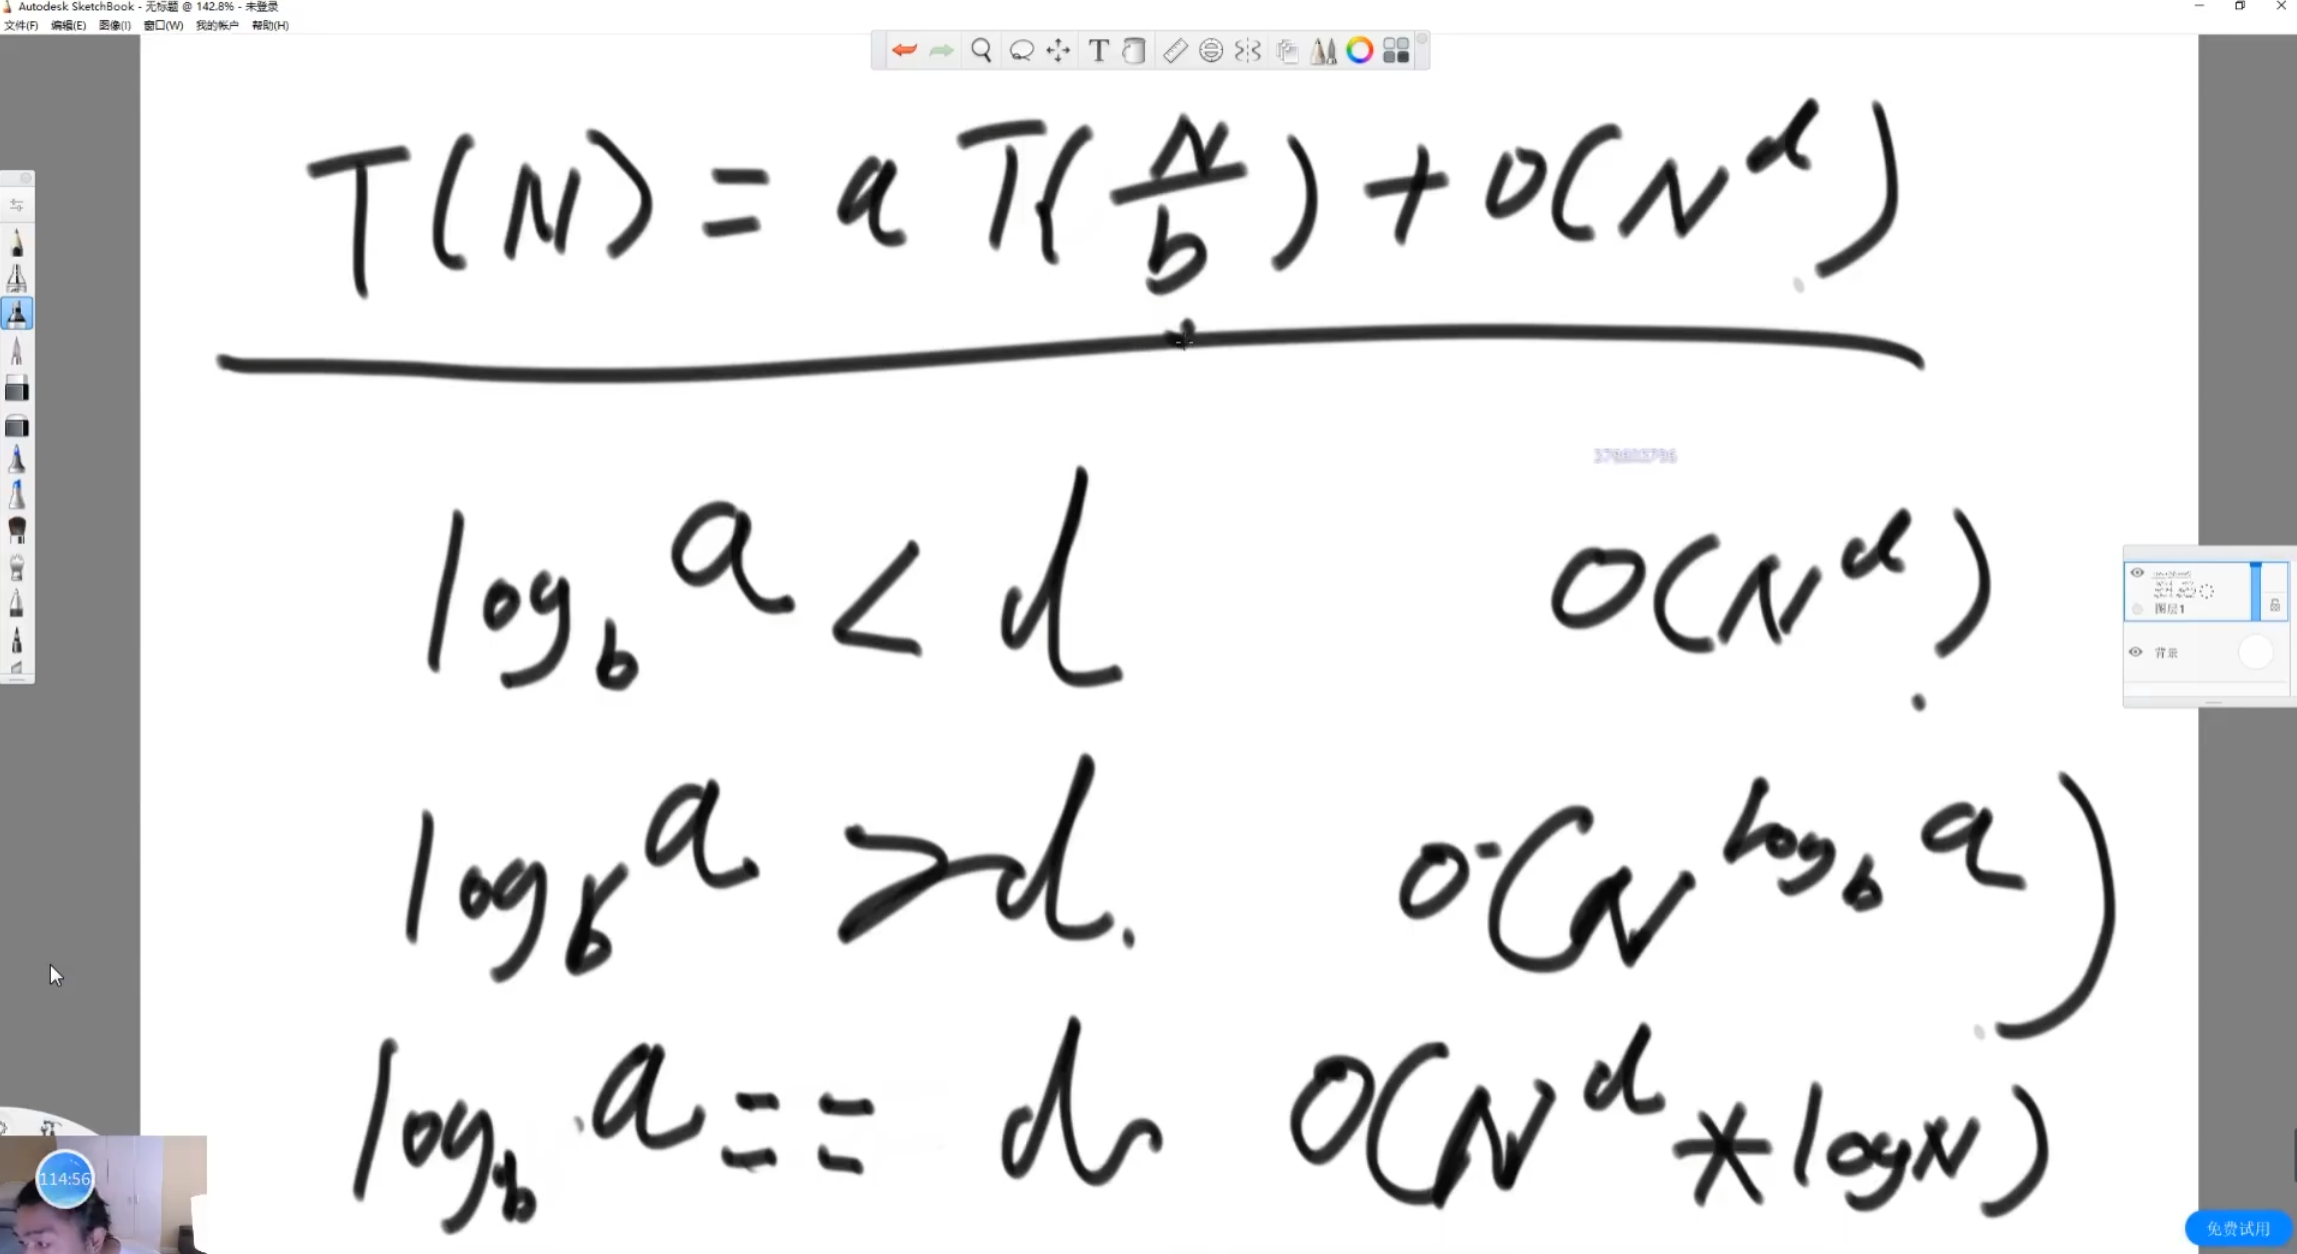 Autodesk SketchBook - 无标题 @ 142.8% - 未登录
文件(F) 编辑(E) 图像(I) 窗口(W) 我的帐户 帮助(H)
T(N) = a T(N/b) + O(N^d)
log_b a < d O(N^d)
图层1
背景
log_b a > d. O(N^log_b a)
log_b a == d O(N^d * logN)
114:56
免费试用